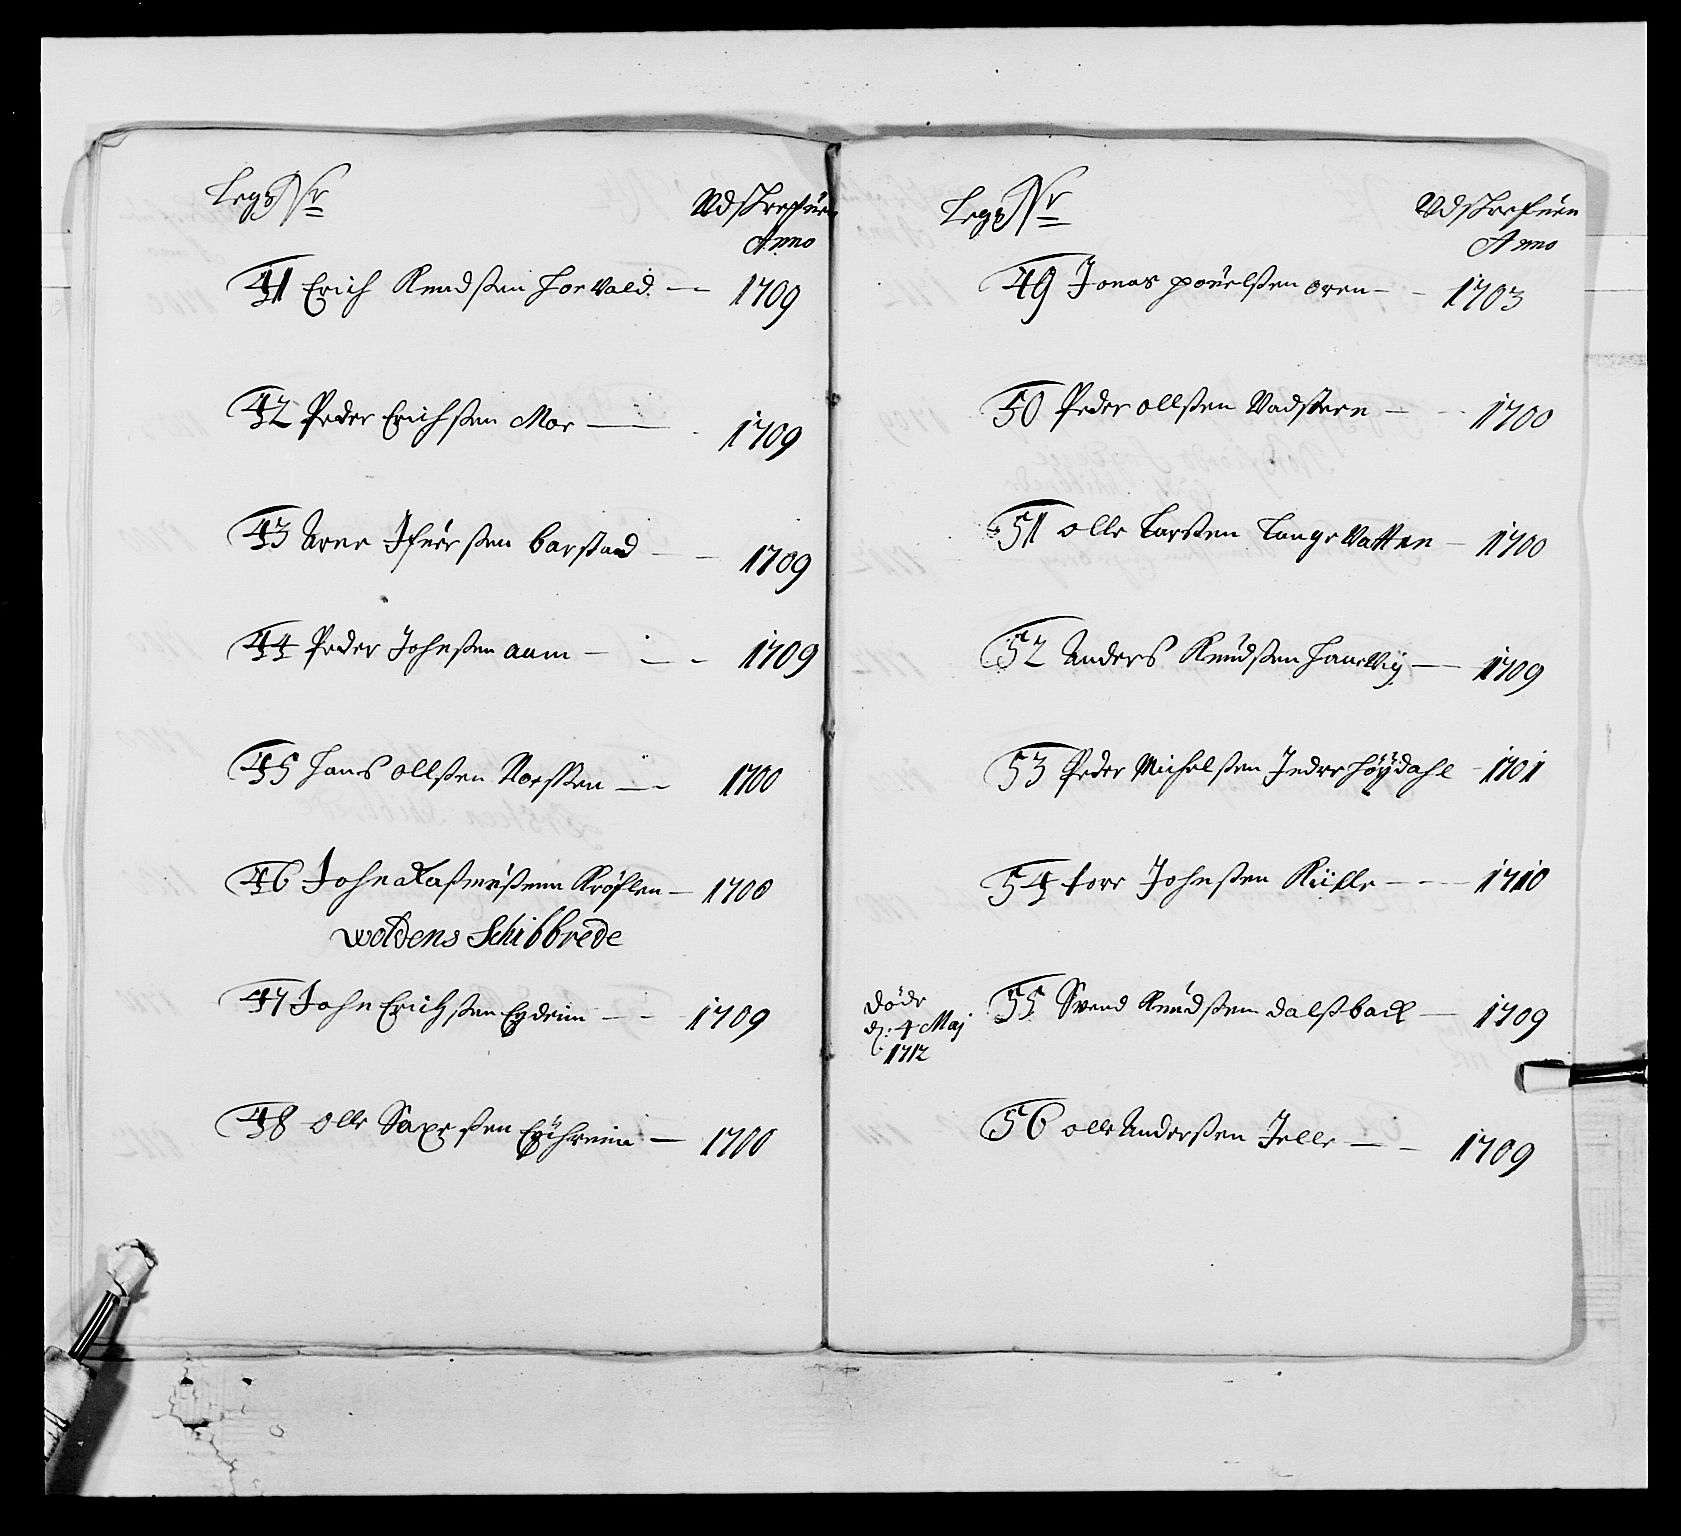 Legs Nr
Udskrefuen
Anno
41 Erich Knudsen Horvald 1709
42 Peder Erichsen Moe 1709
43 Arne Ifuersen barstad 1709
44 Peder Johnsen aam 1709
45 Hans ollsen Noeften 1700
46 John Rasmusenn Krøflen 1700
woldens Schibbrede
47 John Erichsen Eydeim 1709
48 olle Saxesen 1700
Legs Nr
Udskrefuen
Anno
49 Jonas pouelsen oren 1703
50 Peder ollsen Vadsteen 1700
51 olle Larsen LangeVatten 1700
52 Anders Knudsen HaneViig 1709
53 Peder Michelsen Indrehøydahl 1701
54 tore Johnsen 1710
døde
d: 4 Maj
1712
55 Svend Knudsen dalsback 1709
56 olle Andersen Jelle 1709